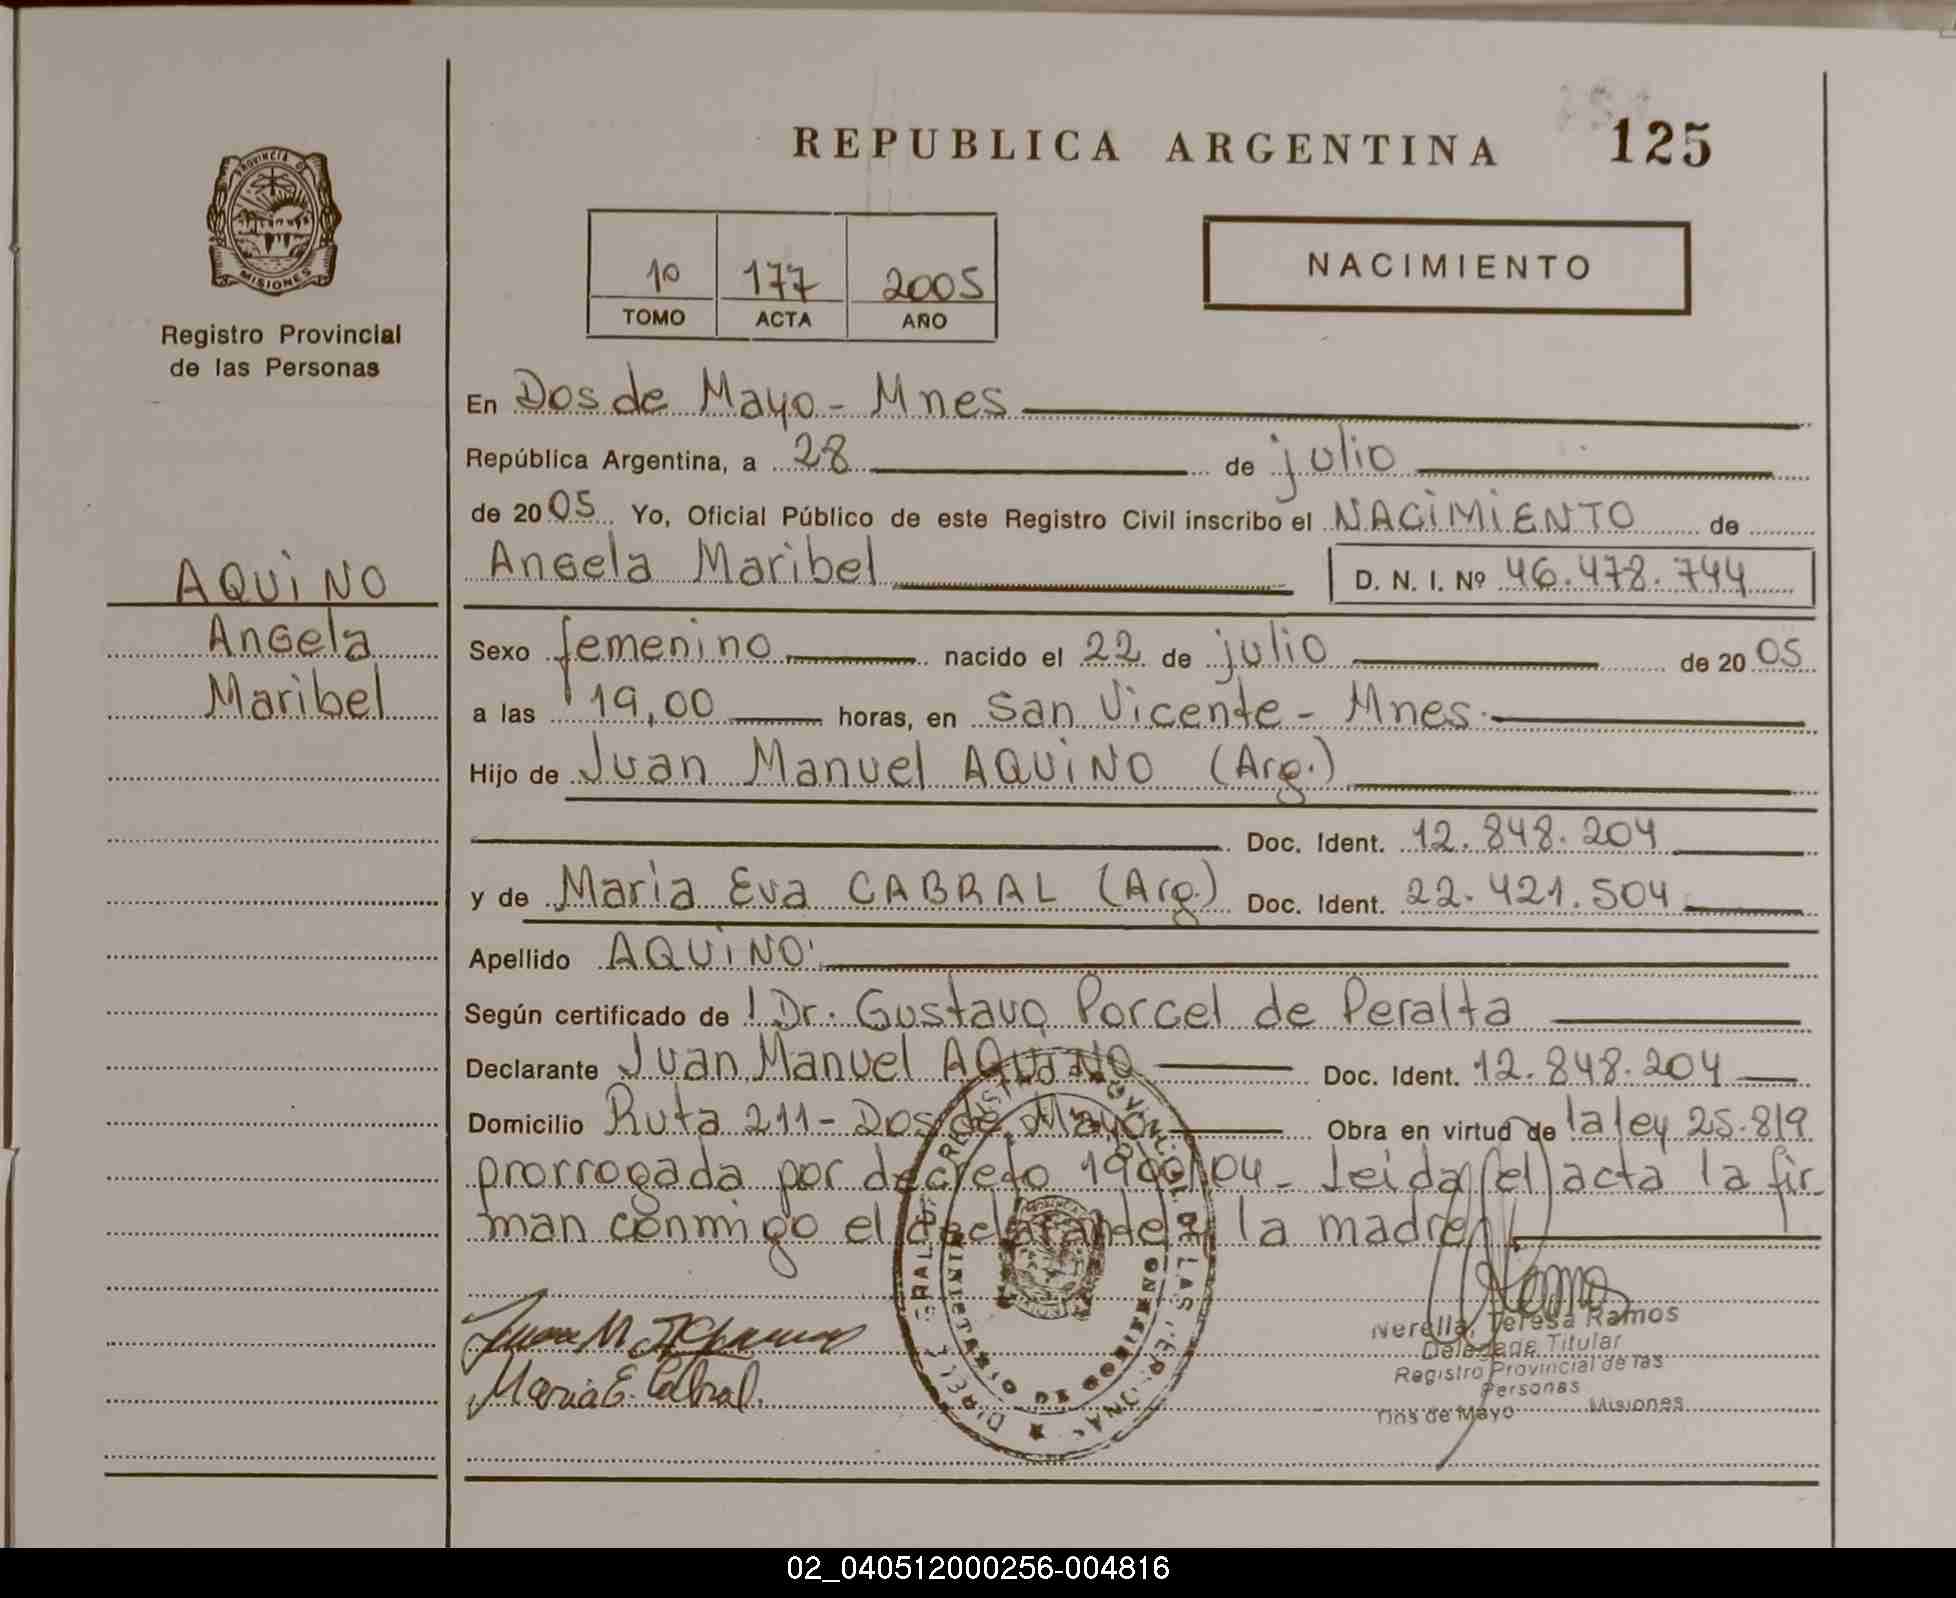 REPUBLICA ARGENTINA 125
PROVINCIA DE
MISIONES
Registro Provincial
de las Personas
10 177 2005
TOMO ACTA AÑO
NACIMIENTO
En Dos de Mayo - Mnes
República Argentina, a 28 de julio
de 2005 Yo, Oficial Público de este Registro Civil inscribo el NACIMIENTO de
Angela Maribel D. N. I. Nº 46.478.744
AQUINO
Angela
Maribel
Sexo femenino nacido el 22 de julio de 2005
a las 19,00 horas, en San Vicente - Mnes.
Hijo de Juan Manuel AQUINO (Arg.)
Doc. Ident. 12.848.204
y de Maria Eva CABRAL (Arg.) Doc. Ident. 22.421.504
Apellido AQUINO
Según certificado de Dr. Gustavo Porcel de Peralta
Declarante Juan Manuel AQUINO Doc. Ident. 12.848.204
Domicilio Ruta 211 - Dos de Mayo Obra en virtud de la ley 25.819
prorrogada por decreto /04 - Leida el acta la fir-
man conmigo el declarante y la madre
Juan M
Maria E. Cabral.
Nerella Teresa Ramos
Delegada Titular
Registro Provincial de las
Personas
Dos de Mayo Misiones
MINISTERIO DE GOBIERNO
02_040512000256-004816